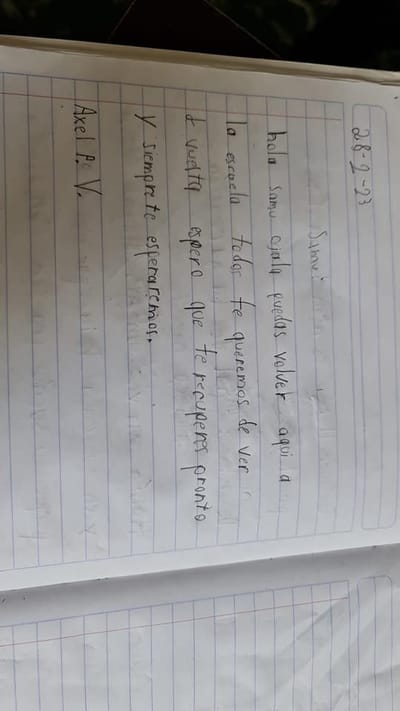 28-2-23
Samu:
hola samu ojala puedas volver aqui a
la escuela todos te queremos de ver
d vuelta espero que te recuperes pronto
y siempre te esperaremos.
Axel P. V.